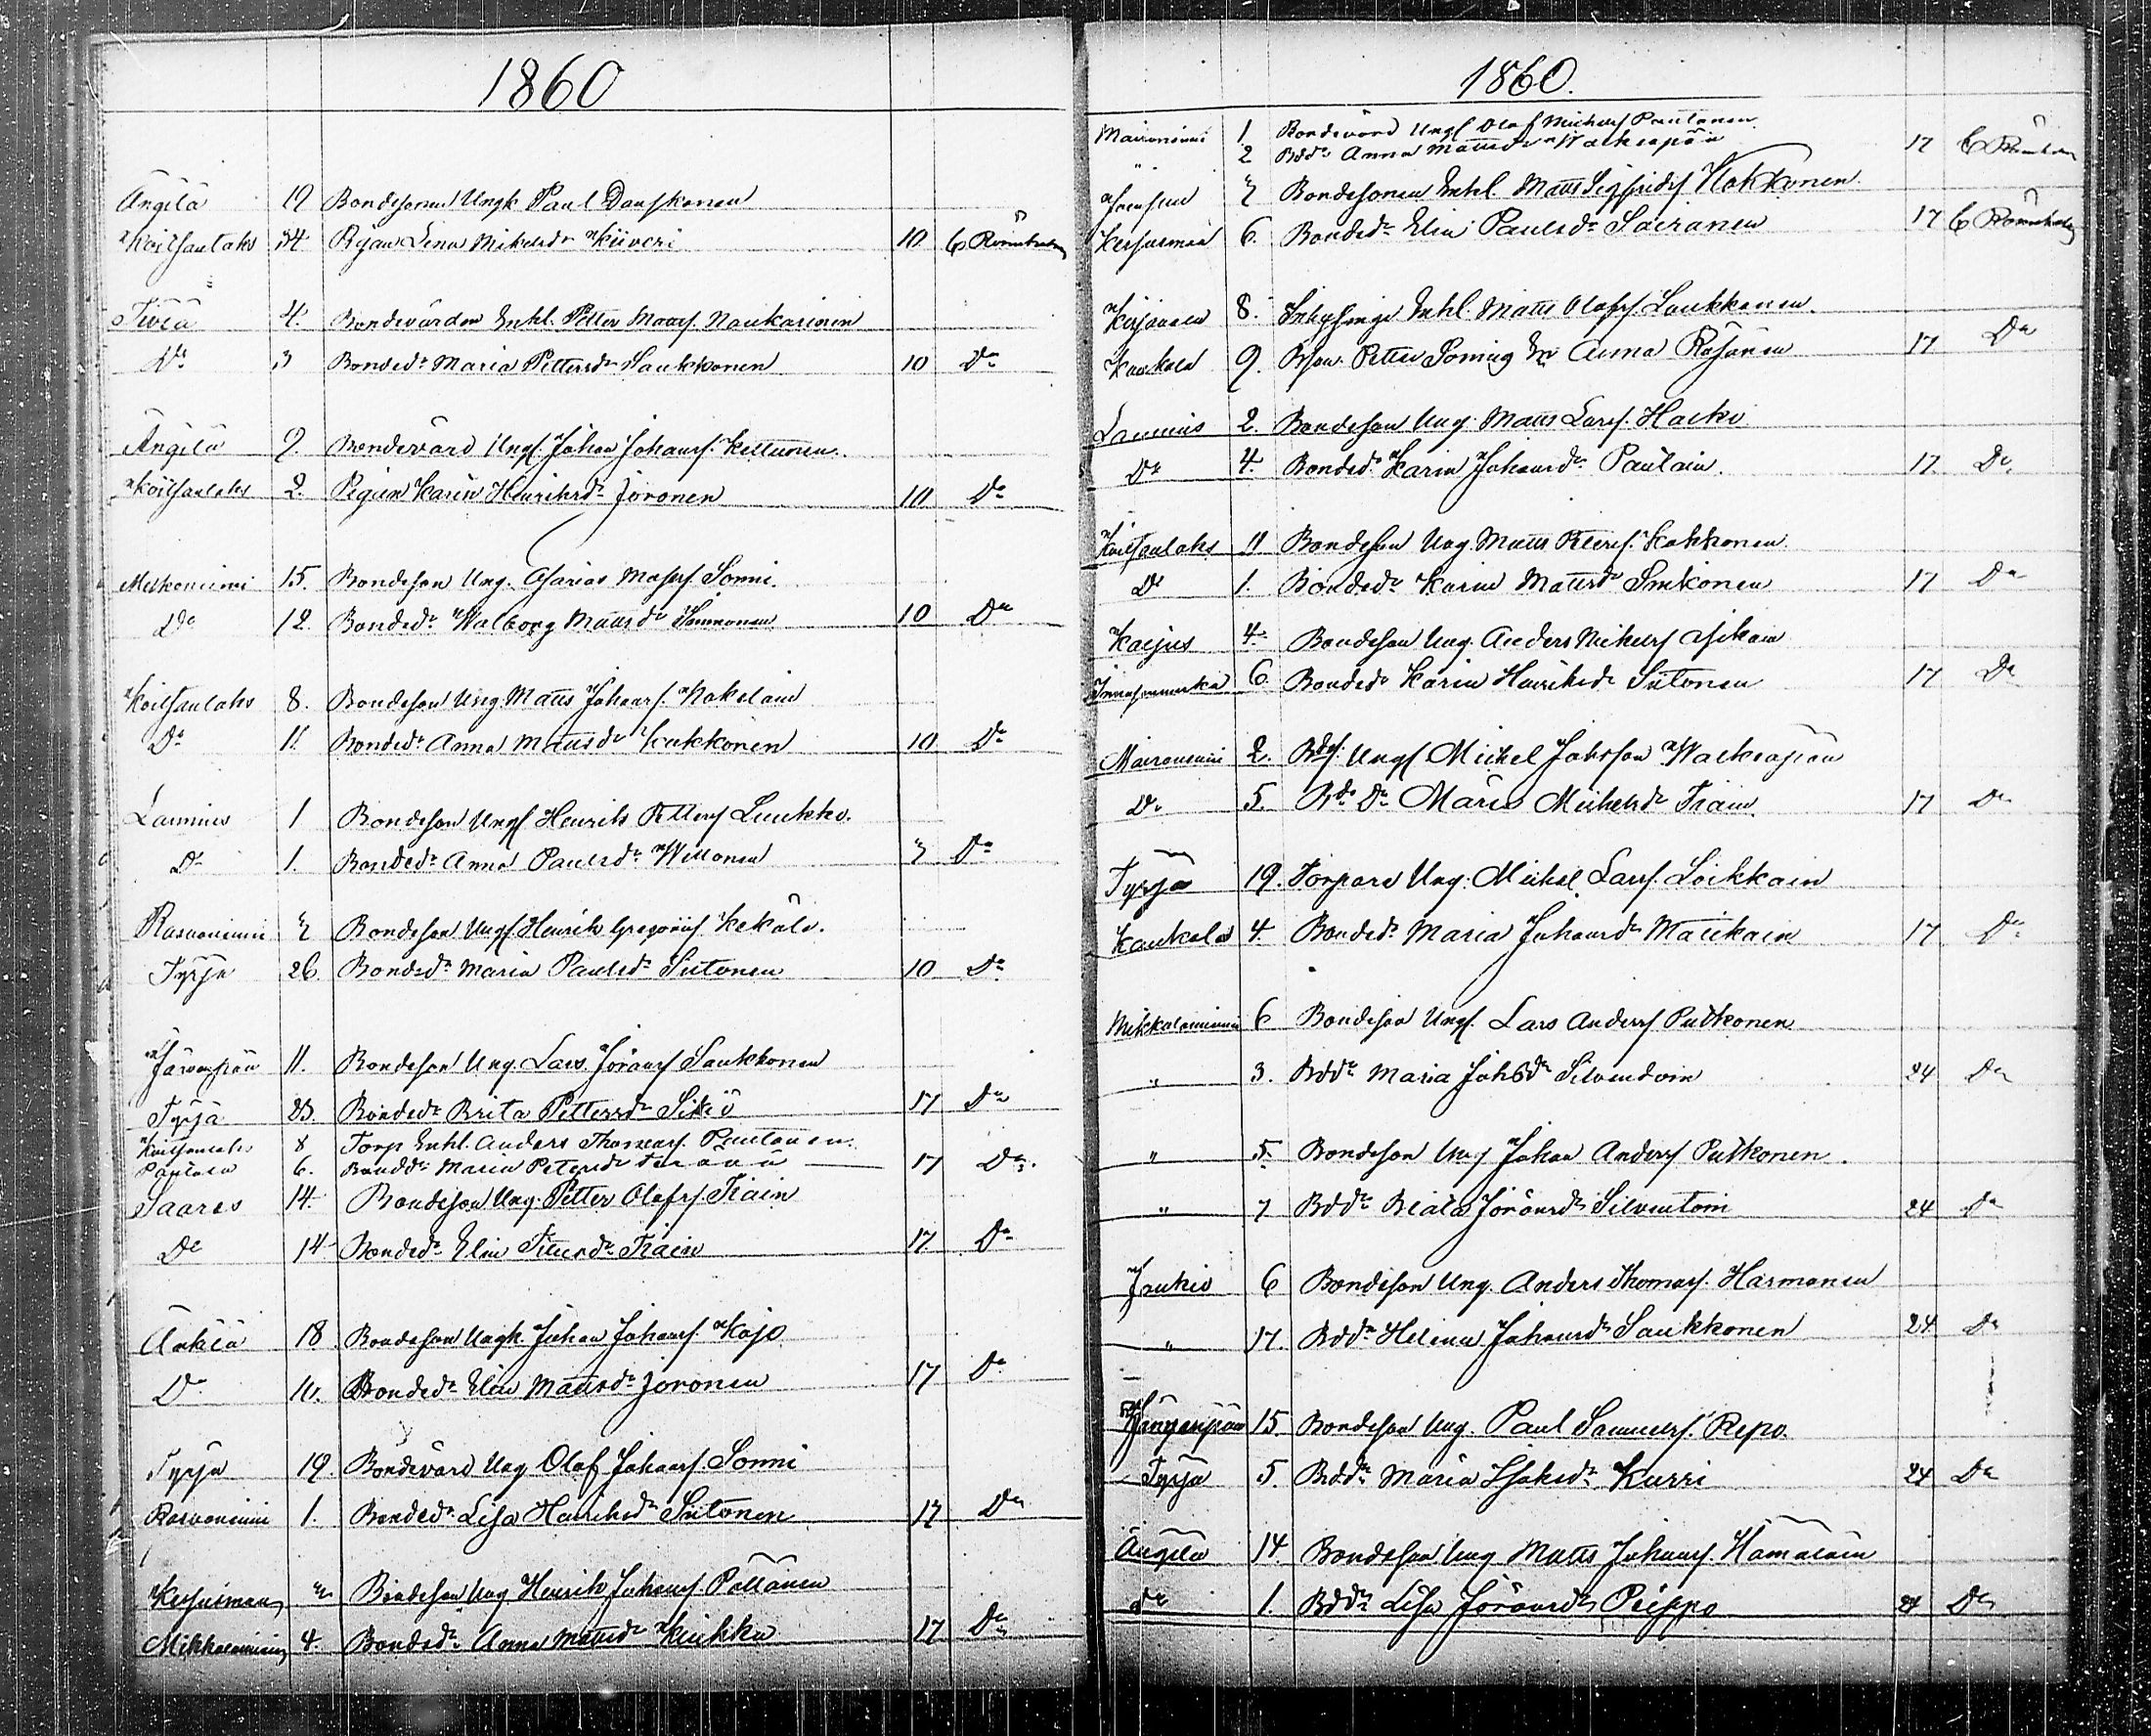 1860
Ängilä 19 Bondesonen Ungk Paul Danskanen
Koitsanlaks 34 Pigan Lena Mikelsdr Kiiveri 10 C Rönnholm
Tiviä 4. Bondevärden Enkl. Petter Mattsf. Naukarinen
Do 3 Bondedr Maria Pettersdr Saukkonen 10 Do
Ängilä 9. Bondevärd Ungk. Johan Johansf. Kettunen.
Koitsanlaks 2. Pigan Karin Henriksdr Joronen 10 Do
Melkoniemi 15. Bondeson Ung. Asarias Matsf. Sonni.
Do 12. Bondedr Walborg Mattsdr Simonen 10 Do
Koitsanlaks 8. Bondeson Ung. Matts Johansf. Kokolain
Do 11. Bondedr Anna Mattsdr Kakkonen 10 Do
Laminus 1 Bondeson Ungk Henrik Pettersf Luukko.
Do 1. Bondedr Anna Paulsdr Willonen 3 Do
Rasvaniemi 3 Bondeson Ungk Henrik Gregoriif Kekäle.
Tyrjä 26. Bondedr Maria Paulsdr Siitonen 10 Do
Järvenpää 11. Bondeson Ung. Lars Jöransf Saukkonen
Tyrjä 23. Bondedr Brita Pettersdr Sikiö 17 Do
Koitsanlaks 8 Torp Enkl. Anders Thomasf. Pautanen.
6. Bonddr Maria Petersdr 17 Do.
Saares 14. Bondeson Ung. Petter Olofsf. Tiain
Do 14 Bondedr Elin Tiain 17. Do
Änkiä 18 Bondeson Ungk. Johan Johansf. Kojo
Do 10. Bondedr Elin Mattsdr Joronen 17 Do
Tyrjä 19. Bondevärd Ung Olof Johansf. Sonni
Rasvaniemi 1. Bondedr Lisa Henriksdr Siitonen 17 Do
Kesusmaa Bondeson Ung Henrik Johansf. Pöllänen
Mikkolanniemi 4. Bondedr Anna Mattsdr Kiukku 17 Do
1860.
1. Bondevärd Ungk Olof Michelsf Pautanen
" 2 Bddr Anna Mattsdr Walkeapää 17 C Rönnholm
3 Bondesonen Enkl. Matts Sigfridsf Kokkonen
Kesusmaa 6. Bondedr Elin Paulsdr Sairanen 17 C Rönnholm
Kirjavala 8. Inhysinge Enkl. Matts Olofsf. Laukkanen.
Kaukola 9. Bson. Petter Sonnis Enk Anna Räsänen 17 Do
Laminus 2. Bondeson Ung. Matts Larsf. Haiko
Do 4. Bondedr Karin Johansdr Pautain. 17. Do
Koitsanlaks 11 Bondeson Ung. Matts Petersf. Kakkonen.
Do 1. Bondedr Karin Mattsdr Sinkonen 17 Do
Karjus 4. Bondeson Ung. Anders Mikelsf Asikain
Innasenmaka 6. Bondedr Karin Henriksdr Siitonen 17 Do
2. Bdf. Ungk Michel Johsson Walkeapää
Do 5. Bds Dr Maria Michelsdr Tiain. 17 Do
Tyrjä 19. Torpare Ung. Michel Larsf. Loikkain
Kaukola 4 Bondedr Maria Johansdr Matikain 17 Do
Mikkolanniemi 6 Bondeson Ungk. Lars Andersf Putkonen
" 3. Bddr Maria Johsdr Silvendoin 24 Do
" 5. Bondeson Ung Johan Andersf Putkonen.
" 7 Bddr Beata Jöransdr Silventoin 24 Do
Joukio 6 Bondeson Ung. Anders Thomasf. Harmonen
" 17. Bddr Helena Johansdr Saukkonen 24 Do
15. Bondeson Ung. Paul Samuelsf. Repo.
Tyrjä 5. Bddr Maria Isaksdr Kurri 24 Do
Ängilä 14. Bondeson Ung Matts Johansf. Hämäläin
Do 1. Bddr Lisa Jöransdr Peippo 24 Do